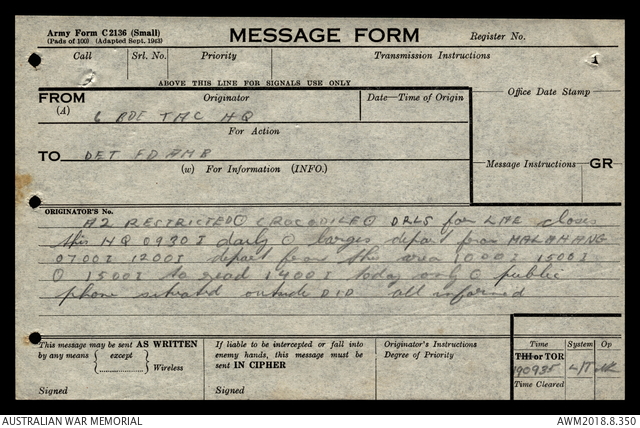 Army Form C2136 (Small)
(Pads of 100) (Adapted Sept. 1943)
MESSAGE FORM
Register No.
Call Srl. No. Priority Transmission Instructions
1
ABOVE THIS LINE FOR SIGNALS USE ONLY
FROM Originator Date—Time of Origin Office Date Stamp
(A) 6 BDE TAC HQ
For Action
TO DET FD AMB
(W) For Information (INFO.) Message Instructions GR
ORIGINATOR'S No.
A2 RESTRICTED ⊙ CROCODILE ⊙ DRLS for LAE closes
this HQ 0930I daily ⊙ barges depart from MALAHANG
0700I 1200I depart from this area 1000I 1500I
⊙ 1500I to read 1400I today only ⊙ public
phone situated outside DID all informed
This message may be sent AS WRITTEN
by any means { except } Wireless
Signed
If liable to be intercepted or fall into
enemy hands, this message must be
sent IN CIPHER
Signed
Originator's Instructions
Degree of Priority
Time System Op
THI or TOR
190935 L/T
Time Cleared
AUSTRALIAN WAR MEMORIAL AWM2018.8.350